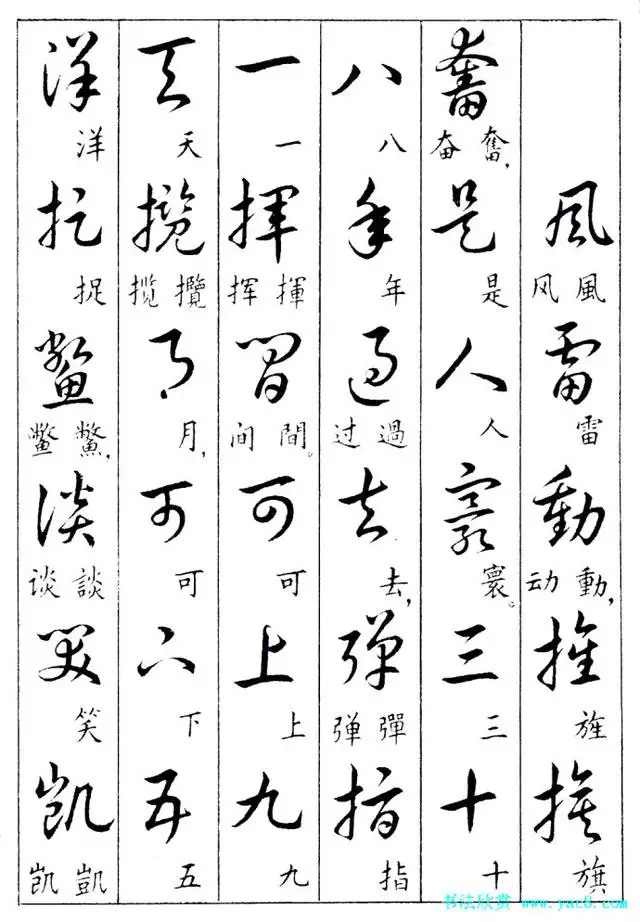 風雷動旌旗
风 風 雷 动 動， 旌 旗
奮是人寰三十
奋 奮， 是 人 寰。 三 十
八年過去彈指
八 年 过 過 去， 弹 彈 指
一揮間可上九
一 挥 揮 间 間。 可 上 九
天攬月可下五
天 揽 攬 月， 可 下 五
洋捉鱉談笑凱
洋 捉 鳖 鱉， 谈 談 笑 凯 凱
书法欣赏 www.yac8.com